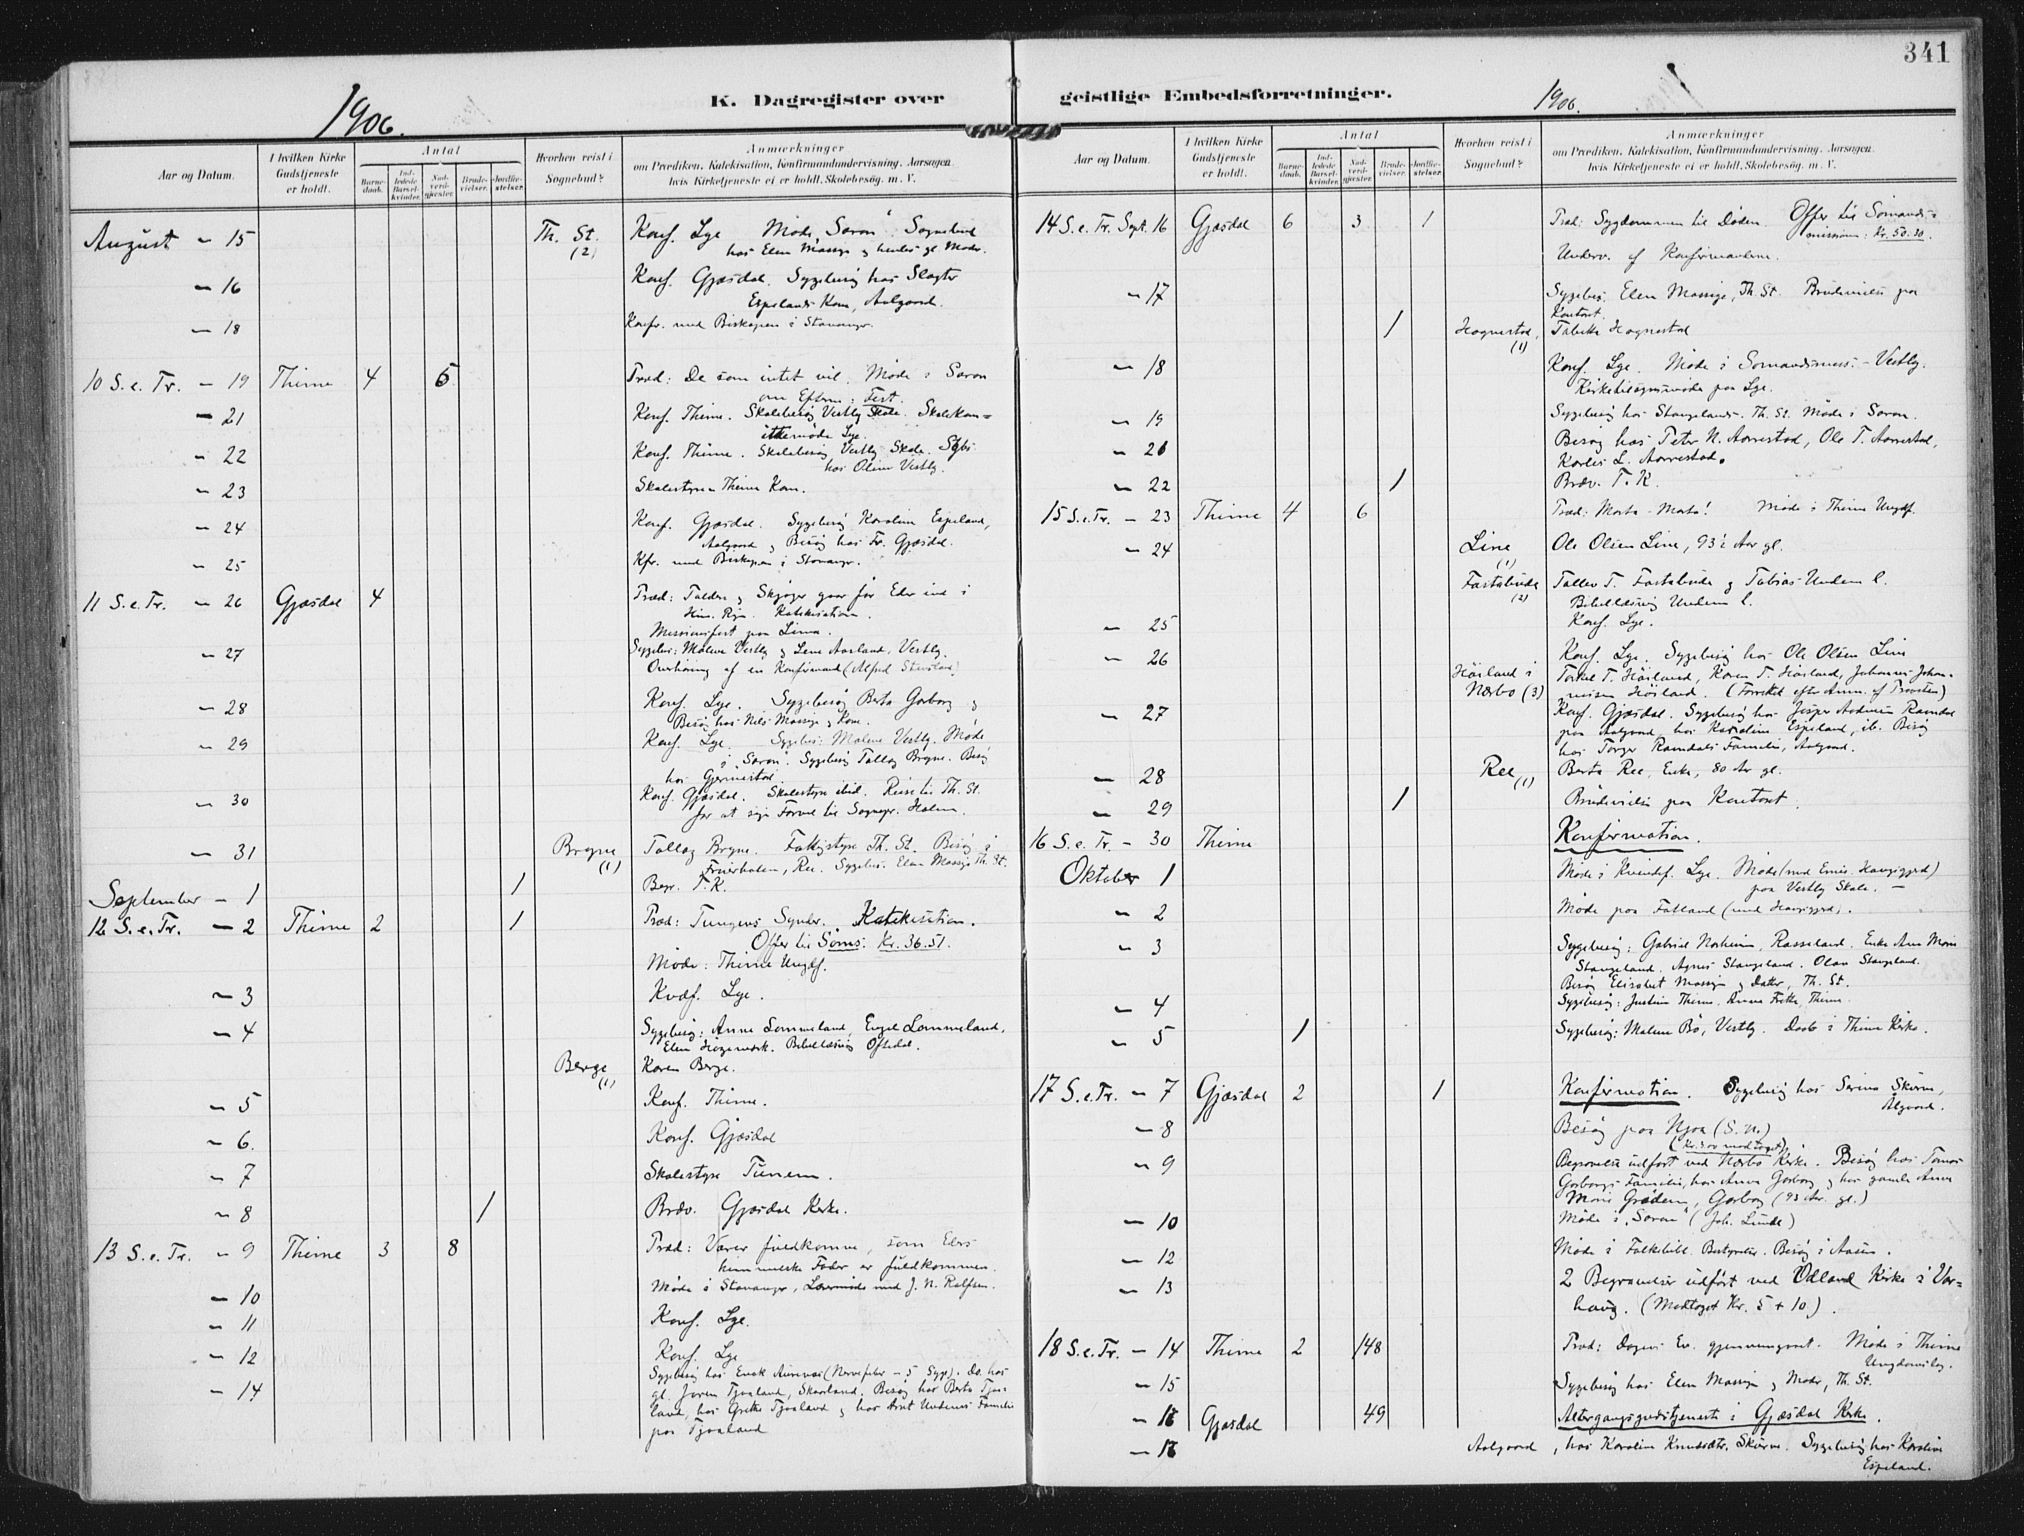 341
K. Dagregister over geistlige Embedsforretninger.
1906.
1906.
Aar og Datum.
I hvilken Kirke Gudstjeneste er holdt.
Antal
Barnedaab.
Indledede Barselkvinder.
Nadverdgjæster.
Brudevielser.
Jordfæstelser.
Hvorhen reist i Sognebud?
Anmærkninger
om Prædiken, Katekisation, Konfirmandundervisning. Aarsagen,
hvis Kirketjeneste ei er holdt, Skolebesøg. m. V.
August - 15 Th. St. (2) Konf. Lye Møde „Saron“. Sognebud
hos Elen Massige og hendes gl. Moder.
- 16 Konf. Gjæsdal. Sygebesøg hos Slagter
Espelands Kone, Aalgaard.
- 18 Konfr. med Biskopen i Stavanger.
10 S. e. Tr. - 19 Thime 4 6 Præd: De som intet vil. Møde i Saron
om Efterm: Fest.
- 21 Konf. Thime. Skolebesøg Vestly Skole. Skolekom=
itémøde Lye.
- 22 Konf. Thime. Skolebesøg Vestly Skole. Sgbs
hos Oline Vestly.
- 23 Skolestyre Thime Kom.
- 24 Konf. Gjæsdal. Sygebesøg Karoline Espeland,
Aalgaard og Besøg hos Fr. Gjæsdal.
- 25 Kfr. med Biskopen i Stavanger.
11 S. e. Tr. - 26 Gjæsdal 4 Præd: Toldere og Skjøger gaar før Eder ind i
Him. Rige. Katekisation.
Missionsfest paa Lima.
- 27 Sygebes: Malene Vestly og Lene Aarland, Vestly.
Overhøring af en Konfirmand (Alfred
- 28 Konf. Lye. Sygebesøg Berta Garborg og
Besøg hos Nils Massige og Kone.
- 29 Konf. Lye. Sygebes: Malene Vestly. Møde
i „Saron“. Sygebesøg Tollag Bryne. Besøg
hos Gjermestad.
- 30 Konf. Gjæsdal. Skolestyre ibid. Reise til Th. St.
for at sige Farvel til Sognepr. Holm.
- 31 Bryne (1) Tollag Bryne. Fattigstyre Th. St. Besøg i
Ree. Sygebes. Elen Massige Th. St.
September - 1 1 Begr. T. K.
12 S. e. Tr. - 2 Thime 2 1 Præd: Tungens Synder. Katekisation.
Offer til Søms: Kr. 36.51.
Møde: Thime Ungdf.
- 3 Kvdf. Lye.
- 4 Sygebesøg: Anne Lommeland, Engel Lommeland,
Elen Bibellæsning Oftedal.
Berge (1) Karen Berge.
- 5 Konf. Thime.
- 6. Konf. Gjæsdal
- 7 Skolestyre Tunem.
- 8 1 Brdv. Gjæsdal Kirke.
13 S. e. Tr. - 9 Thime 3 8 Præd: Værer fuldkomne, som Eders
himmelske Fader er fuldkommen.
- 10 Møde i Stavanger, med J. N. Rolfsen.
- 11 Konf. Lye.
- 12 Konf. Lye
- 14 Sygebesøg hos Enok Aurenes (Nervefeber - 5 Syge). Do. hos
gl. Jøren Tjaaland, Skaarland. Besøg hos Berta Tjaa-
land, hos Grethe Tjaaland og hos Arnt Undems Familie
paa Tjaaland
Aar og Datum.
I hvilken Kirke Gudstjeneste er holdt.
Antal
Barnedaab.
Indledede Barselkvinder.
Nadverdgjæster.
Brudevielser.
Jordfæstelser.
Hvorhen reist i Sognebud?
Anmærkninger
om Prædiken, Katekisation, Konfirmandundervisning. Aarsagen,
hvis Kirketjeneste ei er holdt, Skolebesøg. m. V.
14 S. e. Tr. Sept. 16 Gjæsdal 6 3 1 Præd: Sygdommen til Døden. Offer til Sømands-
missionen: Kr. 50.30.
Underv. af Konfirmanderne.
- 17 Sygebes. Elen Massige, Th. St. Brudevielse paa
Kontoret
1 Hognestad, (1) Tabita Hognestad
- 18 Konf. Lye. Møde i Sømandsmiss. - Vestly.
Kirketilsynsmøde paa Lye.
- 19 Sygebesøg hos Stangelands. Th. St. Møde i Saron.
- 20 Besøg hos Peter N. Aarrestad, Ole T. Aarrestad,
Karles L. Aarrestad.
- 22 1 Brdv. T. K.
15 S. e. Tr. - 23 Thime 4 6 Præd: Marta - Marta! Møde i Thime Ungdf.
- 24 Line (1) Ole Olsen Line, 93½ Aar gl.
Fartsbude (2) Tallev T. Fartsbude og Tobias Undem l.
Bibellæsning Undem l.
- 25 Konf. Lye.
- 26 Konf. Lye. Sygebesøg hos Ole Olsen Line
Høiland i Nærbø (3) Torkel T. Høiland, Karen T. Høiland, Johannes Johan-
nesen Høiland. (Forrettet efter Anm. af Provsten)
- 27 Konf. Gjæsdal. Sygebesøg hos Jesper Andersen Ramdal
paa Aalgaard, hos Karoline Espeland, ib. Besøg
hos Torger Ramdals Familie, Aalgaard.
- 28 Ree (1) Berta Ree, Enke, 80 Aar gl.
- 29 1 Brudevielse paa Kontoret.
16 S. e. Tr. - 30 Thime Konfirmation.
Oktober 1 Møde i Kvindef. Lye. Møde (med Emis.
paa Vestly Skole. -
- 2 Møde paa Fotland (med
- 3 Sygebesøg: Gabriel Norheim, Rosseland. Enke Ane Marie
Stangeland. Agnes Stangeland. Olav Stangeland.
Besøg Elisabet Massige og Datter, Th. St.
- 4 Sygebesøg: Justine Thime. Anna Thime.
- 5 1 Sygebesøg: Malene Bø, Vestly. Daab i Thime Kirke.
17 S. e. Tr. - 7 Gjæsdal 2 1 Konfirmation. Sygebesøg hos Serina Skurve,
Ålgaard.
- 8 Besøg paa Njaa (S. N.)
- 9 Begravelse udført ved Nærbø Kirke. Besøg hos Tomas
Garborgs Familie, hos Anna Garborg og hos gamle Anne
Marie Gradem, Garborg (93 Aar. gl.)
- 10 Møde i „Saron“ (Joh. Lunde)
- 12 Møde i Folkebibl. Bestyrelse. Besøg i Aasen.
- 13 2 Begravelser udført ved Odland Kirke i Var=
haug. (Modtaget Kr. 5 + 10).
18 S. e. Tr. - 14 Thime 2 148 Præd: Dagens Ev. gjennemgaaet. Møde i Thime
Ungdomslag.
- 15 Sygebesøg hos Elen Massige og Moder, Th. St.
- 16 Gjæsdal 49 Altergangsgudstjeneste i Gjæsdal Kirke.
- 16 Aalgaard, hos Karoline Knudsdtr. Skurve. Sygebesøg hos Karoline
Espeland.